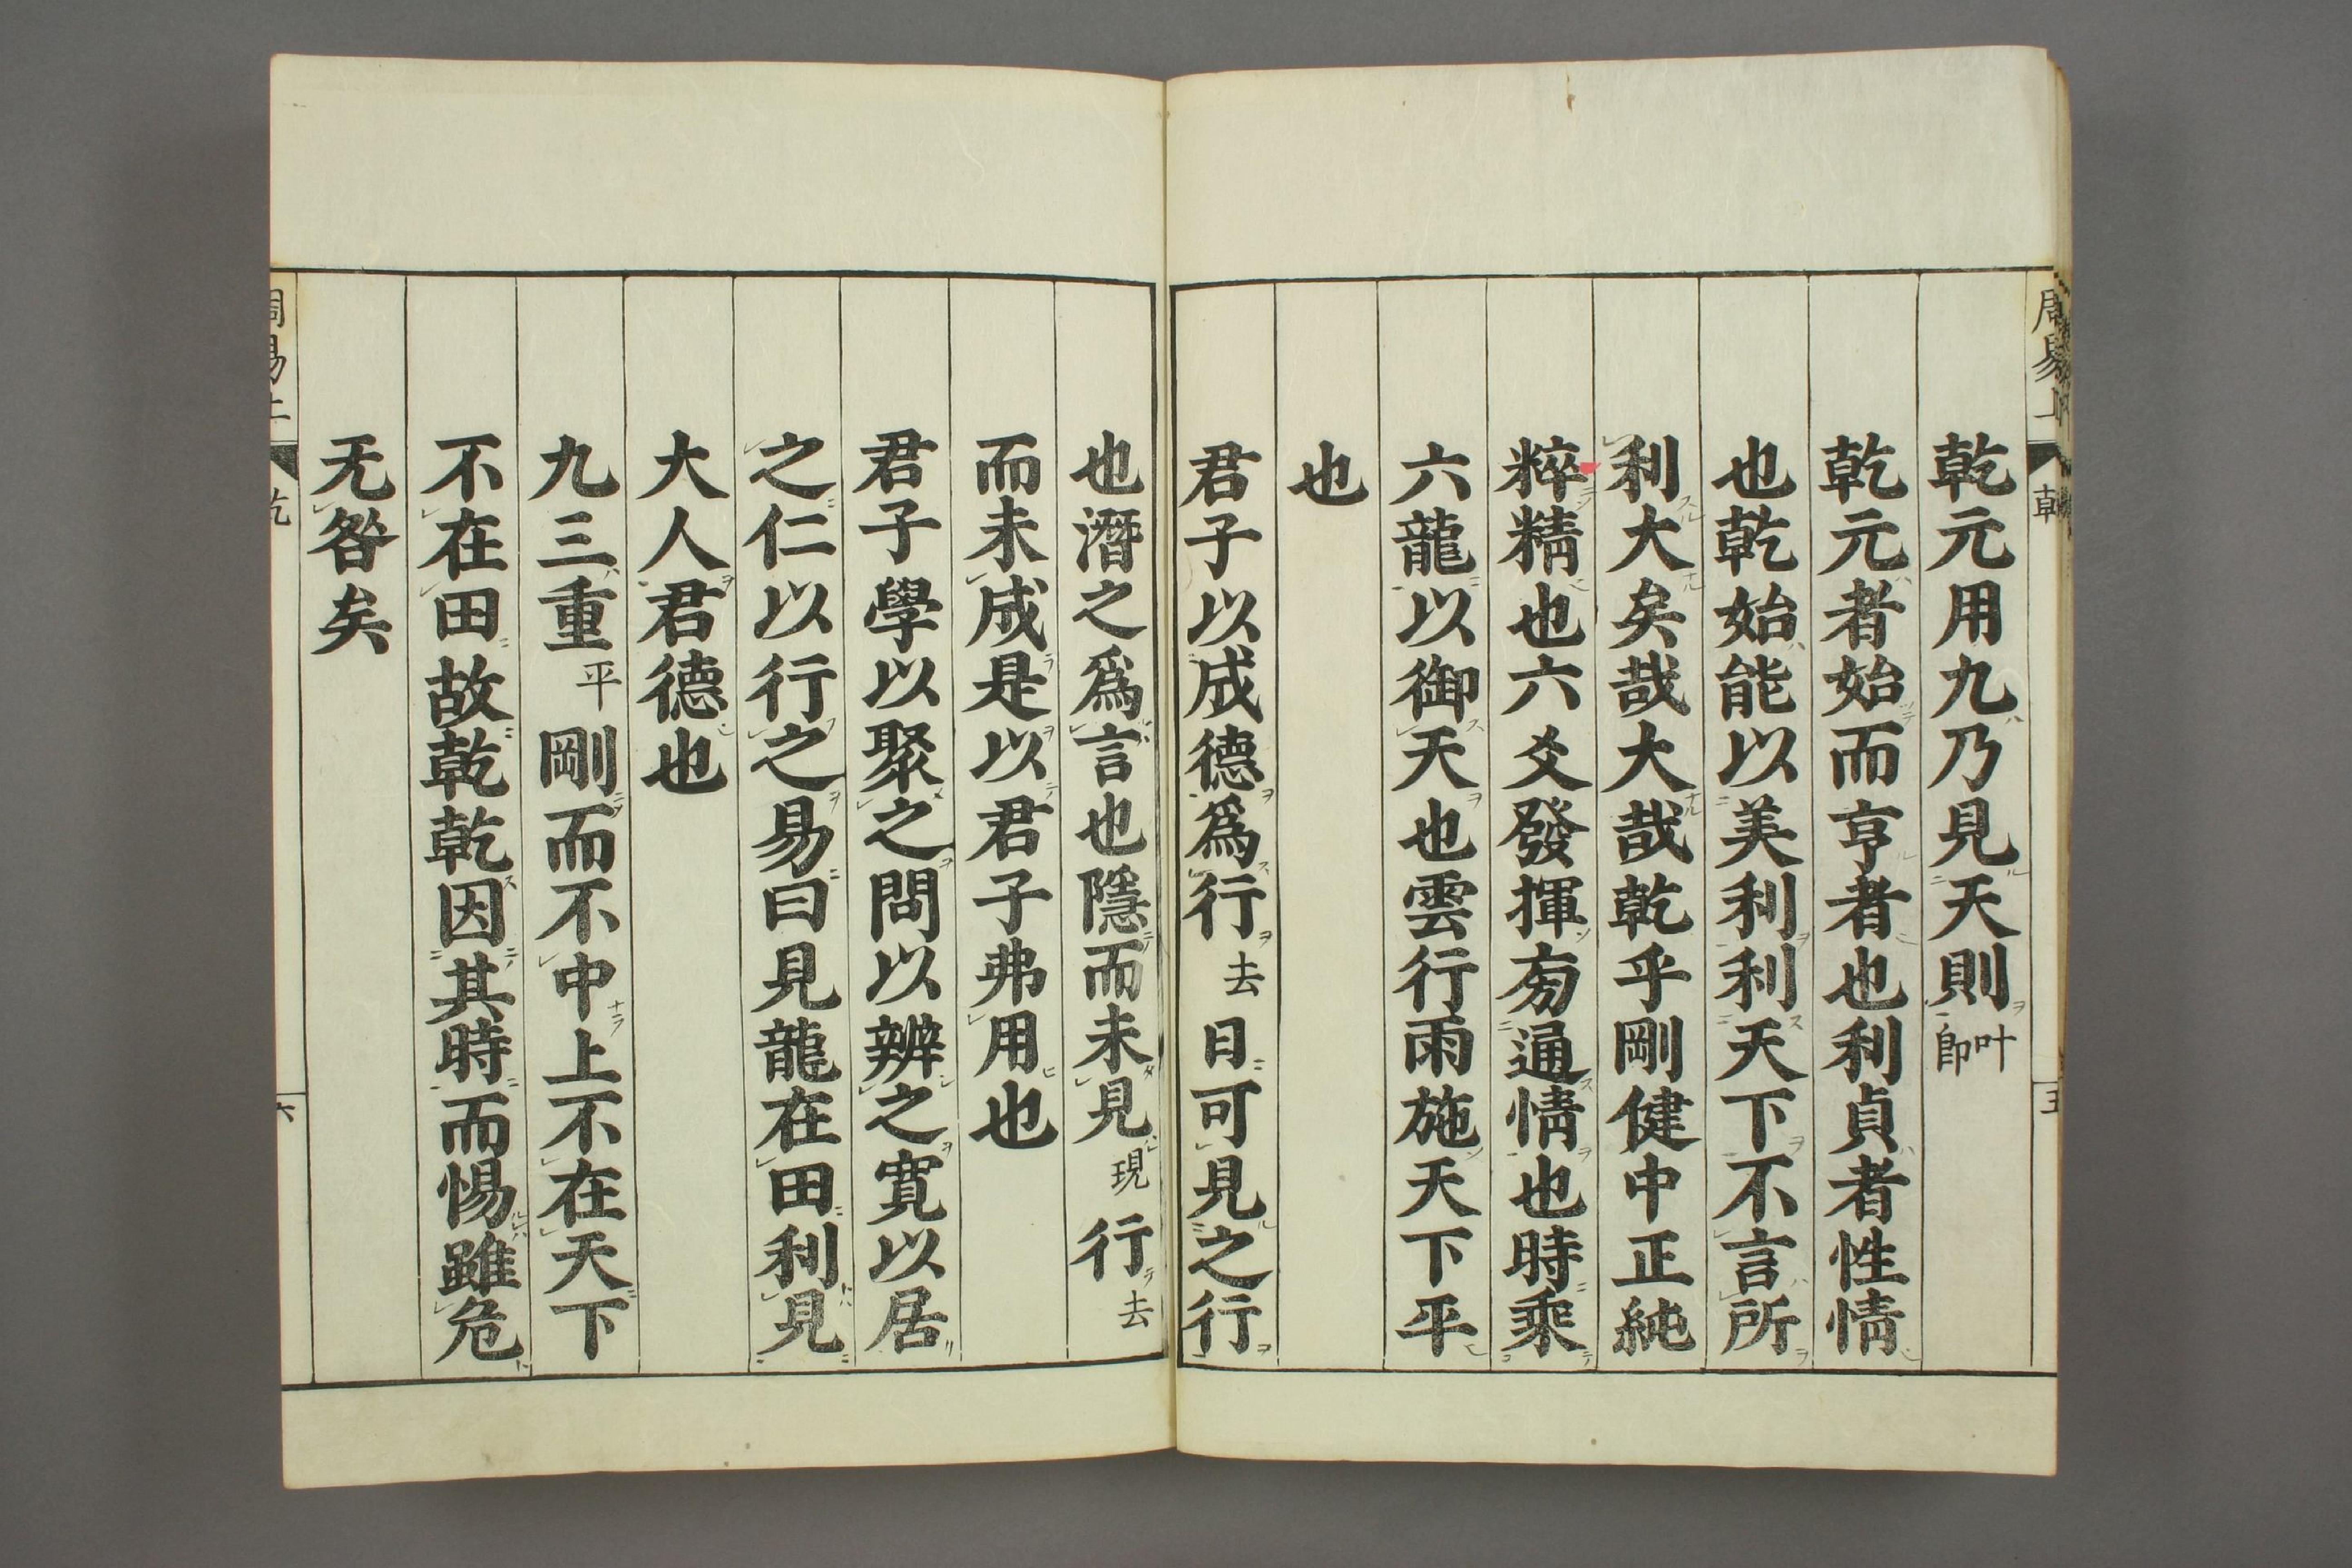 周易上 乾 五
乾元用九乃見天則叶卽
乾元者始而亨者也利貞者性情
也乾始能以美利利天下不言所
利大矣哉大哉乾乎剛健中正純
粹精也六爻發揮旁通情也時乘
六龍以御天也雲行雨施天下平
也
君子以成德爲行去日可見之行
也潛之爲言也隱而未見現行去
而未成是以君子弗用也
君子學以聚之問以辨之寬以居
之仁以行之易曰見龍在田利見
大人君德也
九三重平剛而不中上不在天下
不在田故乾乾因其時而惕雖危
无咎矣
周易上 乾 六